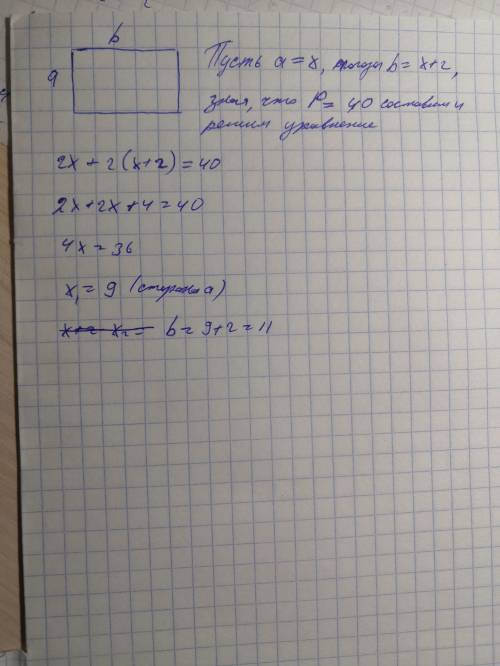 b
a
Пусть a = x, тогда b = x+2,
зная, что P = 40 составим и
решим уравнение
2x + 2(x+2) = 40
2x+2x+4=40
4x = 36
x₁ = 9 (сторона a)
b = 9+2 = 11